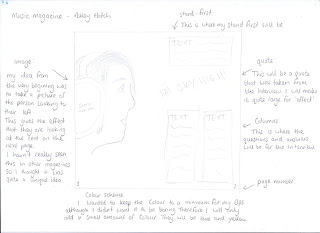 Music magazine - Abbey Hatch
stand-first
This is what my stand first will be
image
my idea from
the very beginning was
to take a picture of
the person looking to
their left
This gives the effect
that they are looking
at the text on the
next page.
I havn't really seen
this in other magazines
so I thought it was
quite a unique idea
TEXT
IM SKY HIGH
TEXT
TEXT
quote
This will be a quote
that was taken from
the interview I will make
it quite large for 'effect'
Columns
This is where the
questions and answers
will be for the interview
page number
Colour scheme
I wanted to keep the colour to a minimum for my DPS
although I didn't want it to be boring therefore I will only
add a small amount of colour. They will be blue and yellow